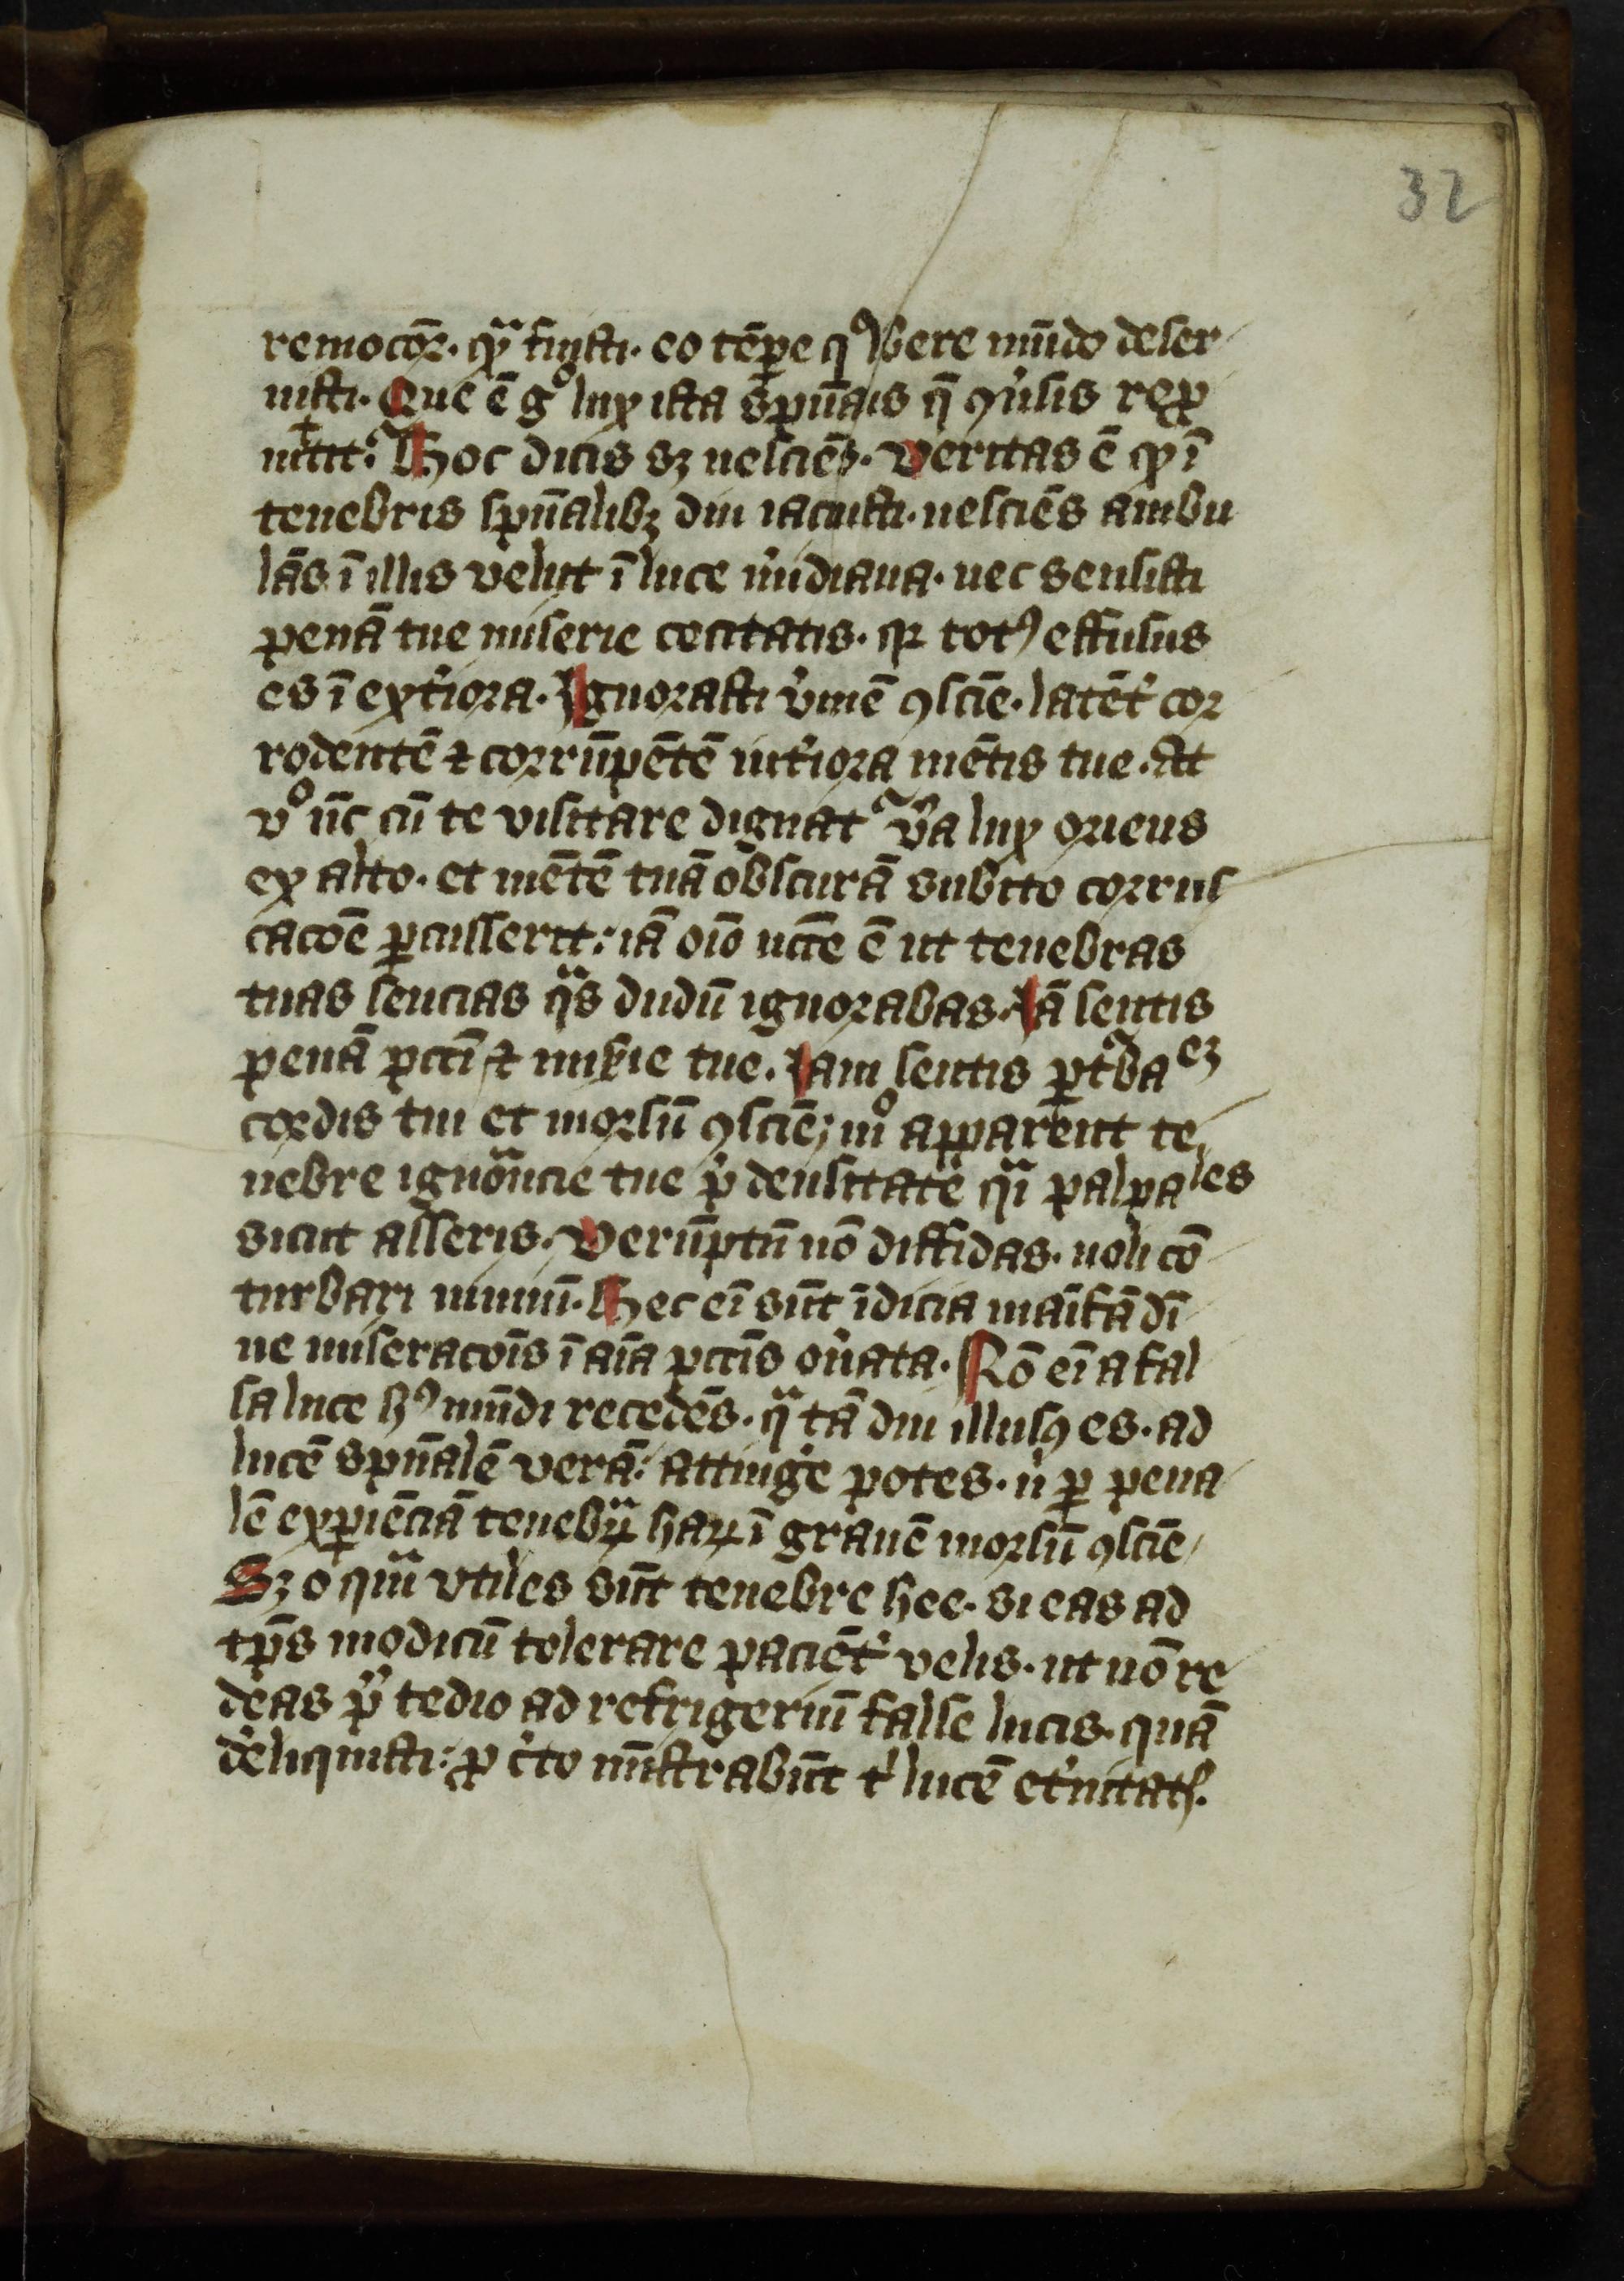 32
remocōꝝ. qͣ fuisti. eo tēꝑe qͦ libere mūdo deser
uisti. Que ē gͦ lux ista sp̄ualis q̄ ꝯuersis rex
uitit? Hoc dicis sꝫ nesciēs. Veritas ē ꝙ ī
tenebris sp̄ualibꝫ diu iacuisti. nesciēs ambu
lās ī illis velut ī luce m̓idiana. nec sensisti
penā tue miserie cecitatis. qꝛ totꝰ effusus
es ī ext̓iora. Ignorasti v̓mē ꝯsciē. latēt̓ cor
rodentē ⁊ corrūpētē int̓iora mētis tue. At
vͦ nūc cū te visitare dignat᷑ v̓a lux oriens
ex alto. et mētē tuā obscurā subito corrus
cacōe ꝑcusserit: iā oīo nc̄ce ē ut tenebras
tuas sencias qͣs dudū ignorabas. Iā sentis
penā pctī ⁊ mis̓ie tue. Iam sentis ꝑt̓baeꝫ
cordis tui et morsū ꝯsciē; mͦ apparent te
nebre ignoͣncie tue p̓ densitatē qͣi palpales
sicut asseris. Verūptn̄ nō diffidas. noli cō
turbari nimiū. Hec eī sūt īdicia maīfā diī
ne miseracōis ī aīa pctīs on̓ata. Rō eī a fal
sa luce hꝰ mūdi recedēs. qͣ tā diu illusꝰ es. ad
lucē sp̄ualē verā: attinge̓ potes. n̓ ꝑ pena
lē exꝑiēciā tenebrꝝ haꝝ ī grauē morsū ꝯsciē
Sꝫ o qͣm vtiles sūt tenebre hee. si eas ad
tp̄s modicū tolerare paciēt̓ velis. ut nō re
deas p̄ tedio ad refrigeriū false lucis. quā
deliquisti: ꝓ c̓to mīstrabūt t̓ lucē et̓nitatꝭ.